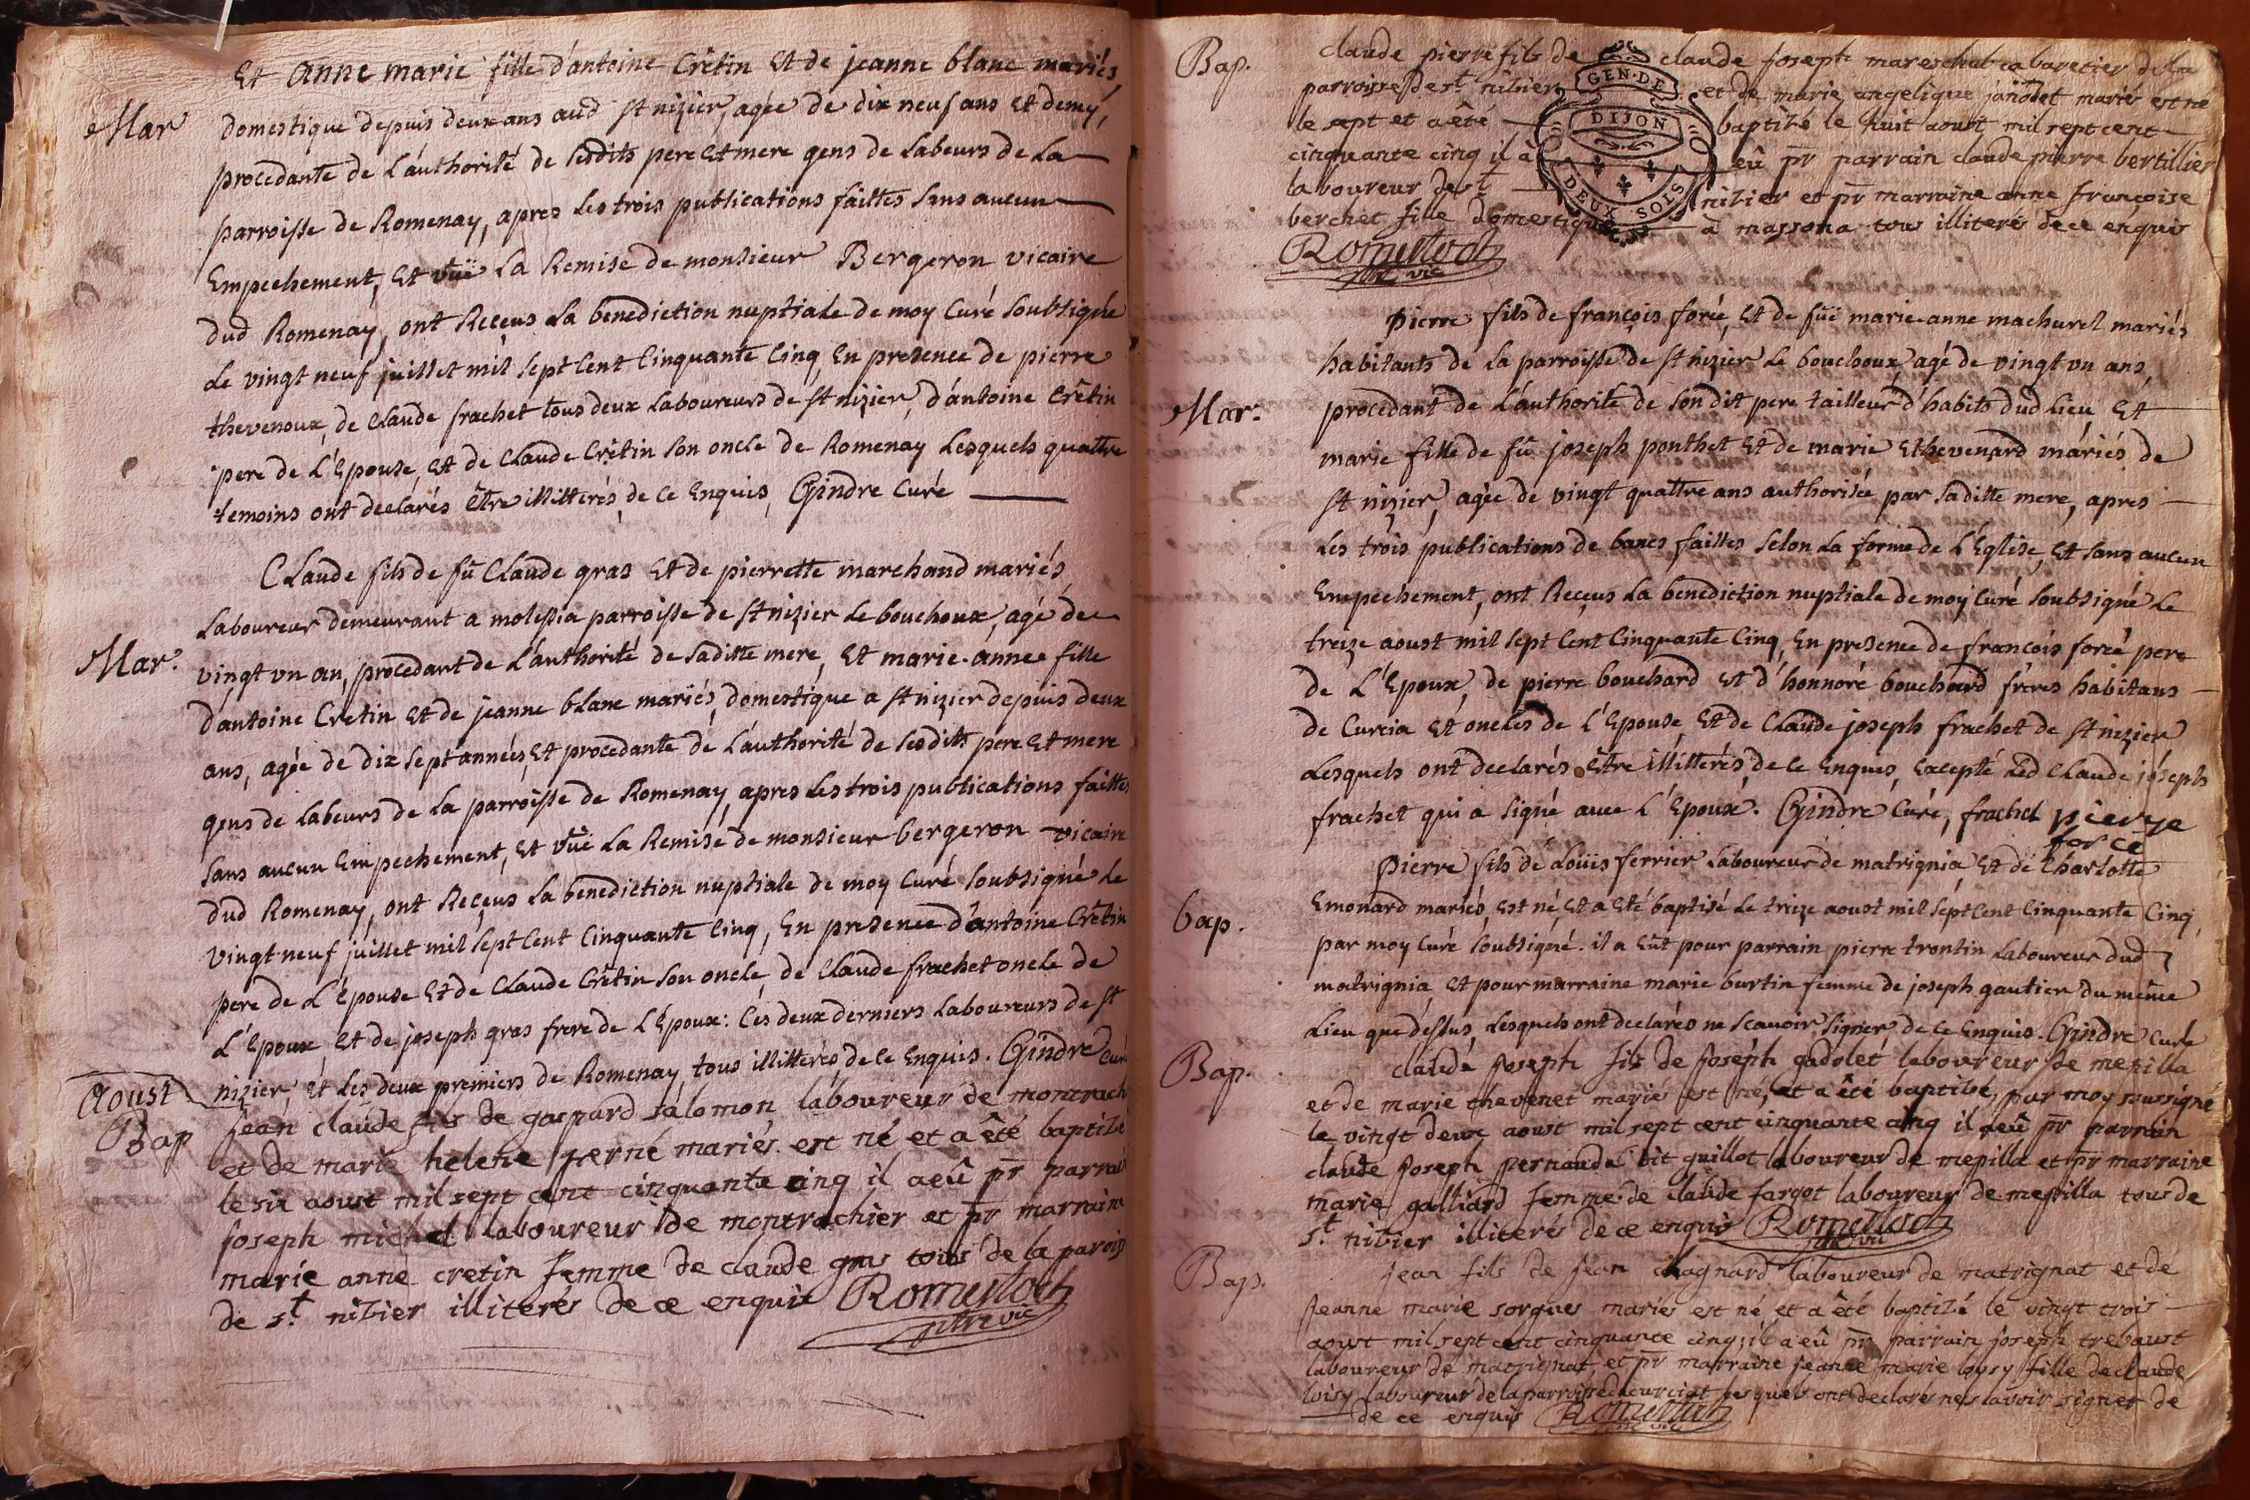 Et anne marie fille d'antoine Crêtin Et de jeanne blanc mariés
Mar
domestique depuis deux ans aud st nizier, agée de dix neuf ans et demy,
procedante de l'authorité de sesdits pere et mere gens de labeurs de la
parroisse de Romenay, apres les trois publications faittes sans aucun
Empechement, et vüe la Remise de monsieur Bergeron vicaire
dud Romenay, ont Reçeus la benediction nuptiale de moy Curé soubsigné
le vingt neuf juillet mil sept Cent Cinquante Cinq, En presence de pierre
thevenoux, de Claude frachet tous deux laboureurs de st nizier, d'antoine Crêtin
pere de l'Epouse, et de Claude Crêtin son oncle de Romenay lesquels quattre
temoins ont declarés être illitterés, de ce Enquis, Gindre Curé
Claude fils de fû Claude gras Et de pierrette marchand mariés
laboureur demeurant a molissia parroisse de st nizier le bouchoux, agé de
Mar.
vingt vn an, procedant de l'authorité de saditte mere, Et marie-anne fille
d'antoine Cretin et de jeanne blanc mariés, domestique a st nizier depuis deux
ans, agée de dix sept années, Et procedante de l'authorité de sesdits pere Et mere
gens de labeurs de la parroisse de Romenay, apres les trois publications faittes
sans aucun Empechement, et vüe la Remise de monsieur bergeron vicaire
dud Romenay, ont Reçeus la benediction nuptiale de moy Curé soubsigné le
vingt neuf juillet mil sept Cent Cinquante Cinq, En presence d'antoine Crêtin
pere de l'Epouse Et de Claude Crêtin son oncle, de Claude frachet oncle de
l'Epoux, Et de joseph gras frere de l'Epoux: Ces deux derniers laboureurs de st
nizier et les deux premiers de Romenay, tous illitterés de ce Enquis. Gindre Curé
Aoust
Bap
jean claude fils de gaspard salomon, laboureur de montrach
et de marie helene perné mariés est né et a êté baptizé
le six aoust mil sept cent cinquante cinq il a eû pr parrain
joseph michel laboureur de montrachier et pr marraine
marie anne cretin femme de claude gras tous de la parois
de st nizier illiterés de ce enquis Romestoch
ptre vic
Bap.
claude pierre fils de claude joseph mareschal cabaretier de la
parroisse de st nizier et de marie angelique janodet mariés est né
le sept et a êté baptizé le huit aoust mil sept cent
cinquante cinq il a eû pr parrain claude pierre bertillier
laboureur de st nizier et pr marraine anne françoise
berchet fille domestique a massona tous illiterés de ce enquis
GEN·DE
DIJON
DEUX SOLS
Romestoch
ptre vic
pierre fils de françois foré, Et de füe marie-anne machurel mariés
habitants de la parroisse de st nizier le bouchoux, agé de vingt vn ans,
Mar.
procedant de l'authorité de son dit pere tailleur d'habits dud lieu, Et
marie fille de fû joseph ponthet Et de marie Ethevenard mariés de
st nizier, agée de vingt quattre ans authorisée par saditte mere, apres
les trois publications de bancs faittes selon la forme de l'Église, Et sans aucun
Empechement, ont Reçeus la benediction nuptiale de moy Curé soubsigné le
treize aoust mil sept Cent Cinquante Cinq, En presence de françois foreé pere
de l'Epoux, de pierre bouchard et d'honnoré bouchard frères habitans
de Curcia et oncles de l'Epouse, Et de Claude joseph frachet de st nizier
lesquels ont declarés être illitterés, de ce Enques, Excepté led Claude joseph
frachet qui a signé avec l'Epoux. Gindre Curé, frachet pierre
force
Pierre fils de Loüis ferrier laboureur de matrignia Et de Charlotte
bap.
Emonard mariés, est né, Et a eté baptisé le treize aoust mil sept Cent Cinquante Cinq
par moy Curé soubsigné. il a Eût pour parrain pierre trontin laboureur dud
matrignia, Et pour marraine marie burtin femme de joseph gautier du même
lieu que dessus, lesquels ont declarés ne scavoir signer de ce Enquis. Gindre Curé
Bap.
claude joseph fils de joseph gadolet laboureur de mepilla
et de marie thevenet mariés est né, et a êté baptizé, par moy soussigné
le vingt deux aoust mil sept cent cinquante cinq il a eû pr parrain
claude joseph pernaude dit guillot laboureur de mepilla et pr marraine
marie galliard femme de claude fargot laboureur de mepilla tous de
st nizier illiterés de ce enquis Romestoch
ptre vic
Bap.
jean fils de jean chagnard laboureur de matrignat et de
jeanne marie sorgues mariés est né et a êté baptizé le vingt trois
aoust mil sept cent cinquante cinq; il a eû pr parrain joseph trebaust
laboureur de matrignat et pr marraine jeanne marie loysy fille de claude
loisy laboureur de la parroisse de curciat lesquels ont declarés ne scavoir signer de
de ce enquis Romestoch
ptre vic